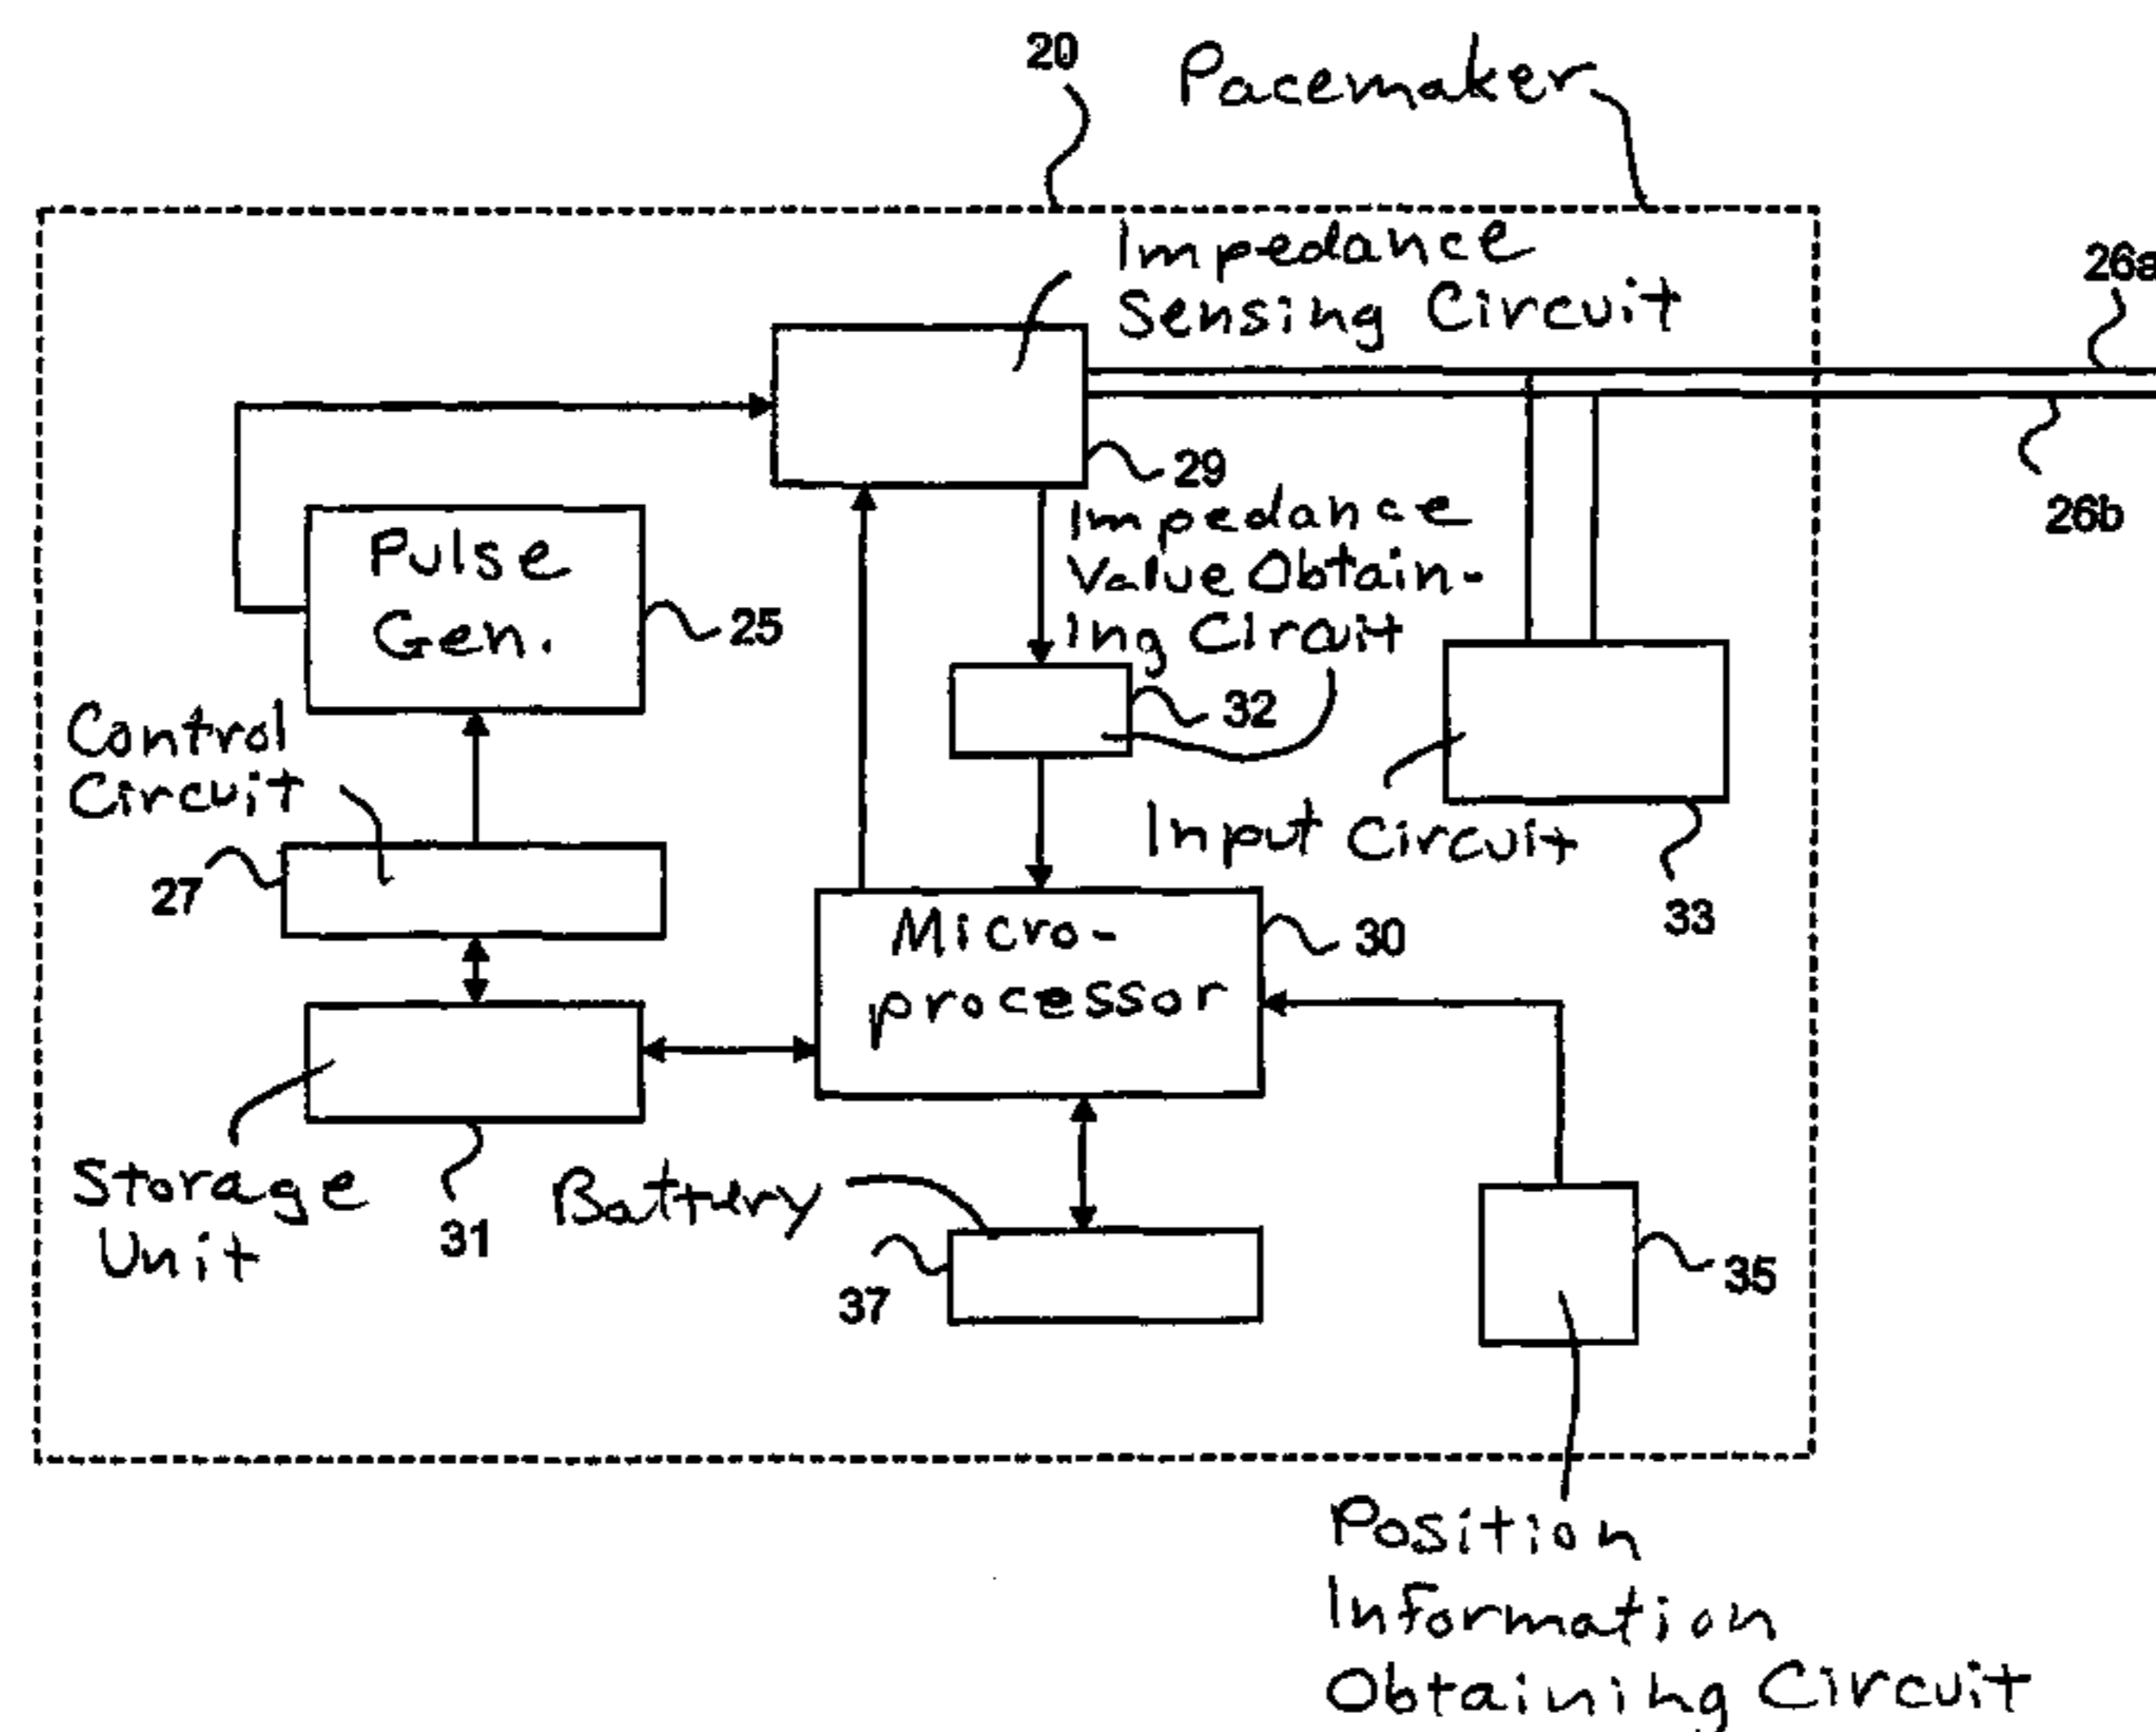 20
Pacemaker
Impedance
Sensing Circuit
26a
29
26b
Pulse
Gen.
25
Impedance
Value Obtain-
ing Circuit
32
Control
Circuit
27
Input Circuit
33
Micro-
processor
30
Storage
Unit
31
Battery
37
35
Position
Information
Obtaining Circuit